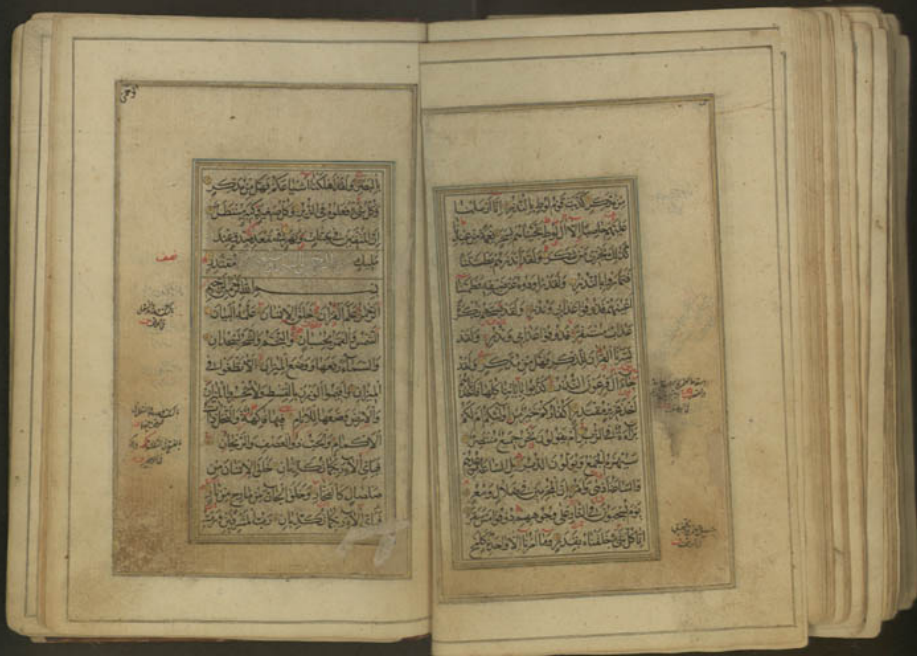 مِنْ مُدَّكِرٍ كَذَّبَتْ قَوْمُ لُوطٍ بِالنُّذُرِ إِنَّا أَرْسَلْنَا
عَلَيْهِمْ حَاصِبًا إِلَّا آلَ لُوطٍ نَجَّيْنَاهُمْ بِسَحَرٍ نِعْمَةً مِنْ عِنْدِنَا
كَذَلِكَ نَجْزِي مَنْ شَكَرَ وَلَقَدْ أَنْذَرَهُمْ بَطْشَتَنَا
فَتَمَارَوْا بِالنُّذُرِ وَلَقَدْ رَاوَدُوهُ عَنْ ضَيْفِهِ فَطَمَسْنَا
أَعْيُنَهُمْ فَذُوقُوا عَذَابِي وَنُذُرِ وَلَقَدْ صَبَّحَهُمْ بُكْرَةً
عَذَابٌ مُسْتَقِرٌّ فَذُوقُوا عَذَابِي وَنُذُرِ وَلَقَدْ
يَسَّرْنَا الْقُرْآنَ لِلذِّكْرِ فَهَلْ مِنْ مُدَّكِرٍ وَلَقَدْ
جَاءَ آلَ فِرْعَوْنَ النُّذُرُ كَذَّبُوا بِآيَاتِنَا كُلِّهَا فَأَخَذْنَاهُمْ
أَخْذَ عَزِيزٍ مُقْتَدِرٍ أَكُفَّارُكُمْ خَيْرٌ مِنْ أُولَئِكُمْ أَمْ لَكُمْ
بَرَاءَةٌ فِي الزُّبُرِ أَمْ يَقُولُونَ نَحْنُ جَمِيعٌ مُنْتَصِرٌ
سَيُهْزَمُ الْجَمْعُ وَيُوَلُّونَ الدُّبُرَ بَلِ السَّاعَةُ مَوْعِدُهُمْ
وَالسَّاعَةُ أَدْهَى وَأَمَرُّ إِنَّ الْمُجْرِمِينَ فِي ضَلَالٍ وَسُعُرٍ
يَوْمَ يُسْحَبُونَ فِي النَّارِ عَلَى وُجُوهِهِمْ ذُوقُوا مَسَّ سَقَرَ
إِنَّا كُلَّ شَيْءٍ خَلَقْنَاهُ بِقَدَرٍ وَمَا أَمْرُنَا إِلَّا وَاحِدَةٌ كَلَمْحٍ
بِالْبَصَرِ وَلَقَدْ أَهْلَكْنَا أَشْيَاعَكُمْ فَهَلْ مِنْ مُدَّكِرٍ
وَكُلُّ شَيْءٍ فَعَلُوهُ فِي الزُّبُرِ وَكُلُّ صَغِيرٍ وَكَبِيرٍ مُسْتَطَرٌ
إِنَّ الْمُتَّقِينَ فِي جَنَّاتٍ وَنَهَرٍ فِي مَقْعَدِ صِدْقٍ عِنْدَ
مَلِيكٍ مُقْتَدِرٍ
بِسْمِ اللَّهِ الرَّحْمَنِ الرَّحِيمِ
الرَّحْمَنُ عَلَّمَ الْقُرْآنَ خَلَقَ الْإِنْسَانَ عَلَّمَهُ الْبَيَانَ
الشَّمْسُ وَالْقَمَرُ بِحُسْبَانٍ وَالنَّجْمُ وَالشَّجَرُ يَسْجُدَانِ
وَالسَّمَاءَ رَفَعَهَا وَوَضَعَ الْمِيزَانَ أَلَّا تَطْغَوْا فِي
الْمِيزَانِ وَأَقِيمُوا الْوَزْنَ بِالْقِسْطِ وَلَا تُخْسِرُوا الْمِيزَانَ
وَالْأَرْضَ وَضَعَهَا لِلْأَنَامِ فِيهَا فَاكِهَةٌ وَالنَّخْلُ ذَاتُ
الْأَكْمَامِ وَالْحَبُّ ذُو الْعَصْفِ وَالرَّيْحَانُ
فَبِأَيِّ آلَاءِ رَبِّكُمَا تُكَذِّبَانِ خَلَقَ الْإِنْسَانَ مِنْ
صَلْصَالٍ كَالْفَخَّارِ وَخَلَقَ الْجَانَّ مِنْ مَارِجٍ مِنْ نَارٍ
فَبِأَيِّ آلَاءِ رَبِّكُمَا تُكَذِّبَانِ رَبُّ الْمَشْرِقَيْنِ وَرَبُّ
نصف